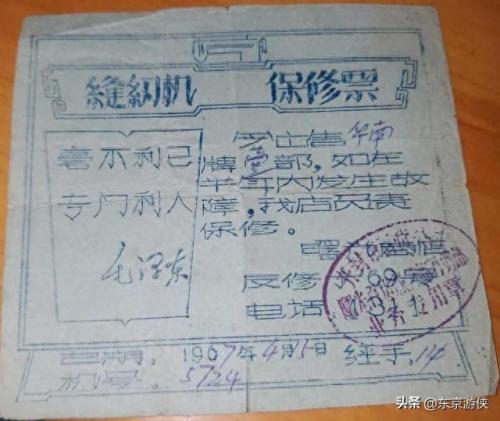 縫紉机 保修票
毫不利己
专门利人
毛泽东
今出售华南
牌壹部,如在
半年内发生故
障,我店负责
保修。
反修 69号
电话
业务专用章
日期:1967年4月15日 经手:14
机号:5724
头条 @东京游侠